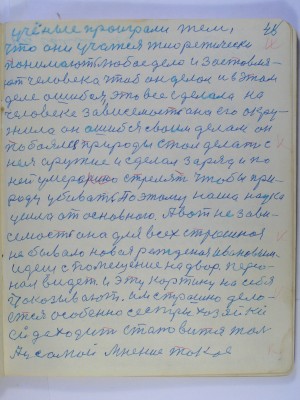 учёные проиграли тем, 48
что они учатся теоретически
понимают любое дело и заставля-
ют человека чтоб он делал и в этом
деле ошибся, это все сделала на
человеке зависимость она его окру-
жила он ошибся своим делам он
побоялся природы стал делать с
нея оружие и сделал заряд и по
ней умерено стрелят чтобы при-
роду убивать Поэтому наша наука
ушла от основного. А вот не зави-
симость она для всех страшная
не бывало новая рождения ивановым
идеи с помещение на двор, персо-
нал видет и эту картину на себя
показывают. им страшно дела-
ется особенно сестри хозяйки
ей доходит становится там
А у самой мнение такое